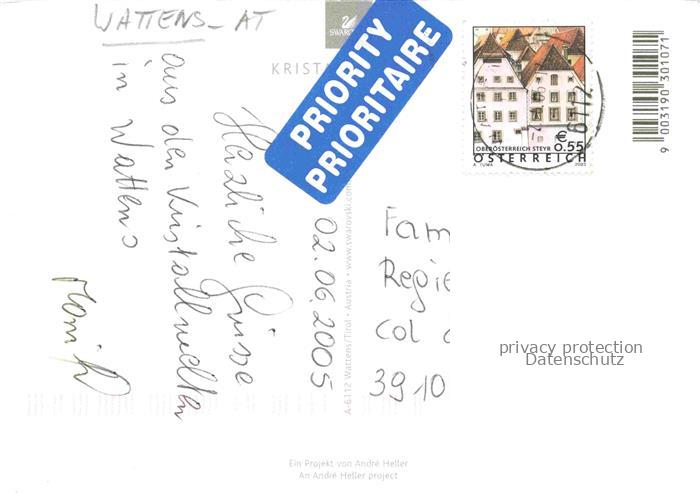 WATTENS - AT
SWAROVSKI
KRIST
PRIORITY
PRIORITAIRE
02.06.2005
Herzliche Grüsse
aus den Kristallwelten
in Wattens
A-6112 Wattens/Tirol • Austria • www.swarovski.com
Fam
Regie
col
3910
€
0.55
OBERÖSTERREICH STEYR
ÖSTERREICH
6112
9 003190 301071
privacy protection
Datenschutz
Ein Projekt von André Heller
An André Heller project